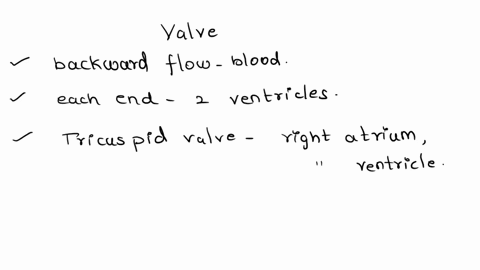 Valve
✓ backward flow - blood.
✓ each end - 2 ventricles.
✓ Tricuspid valve - right atrium,
" ventricle.